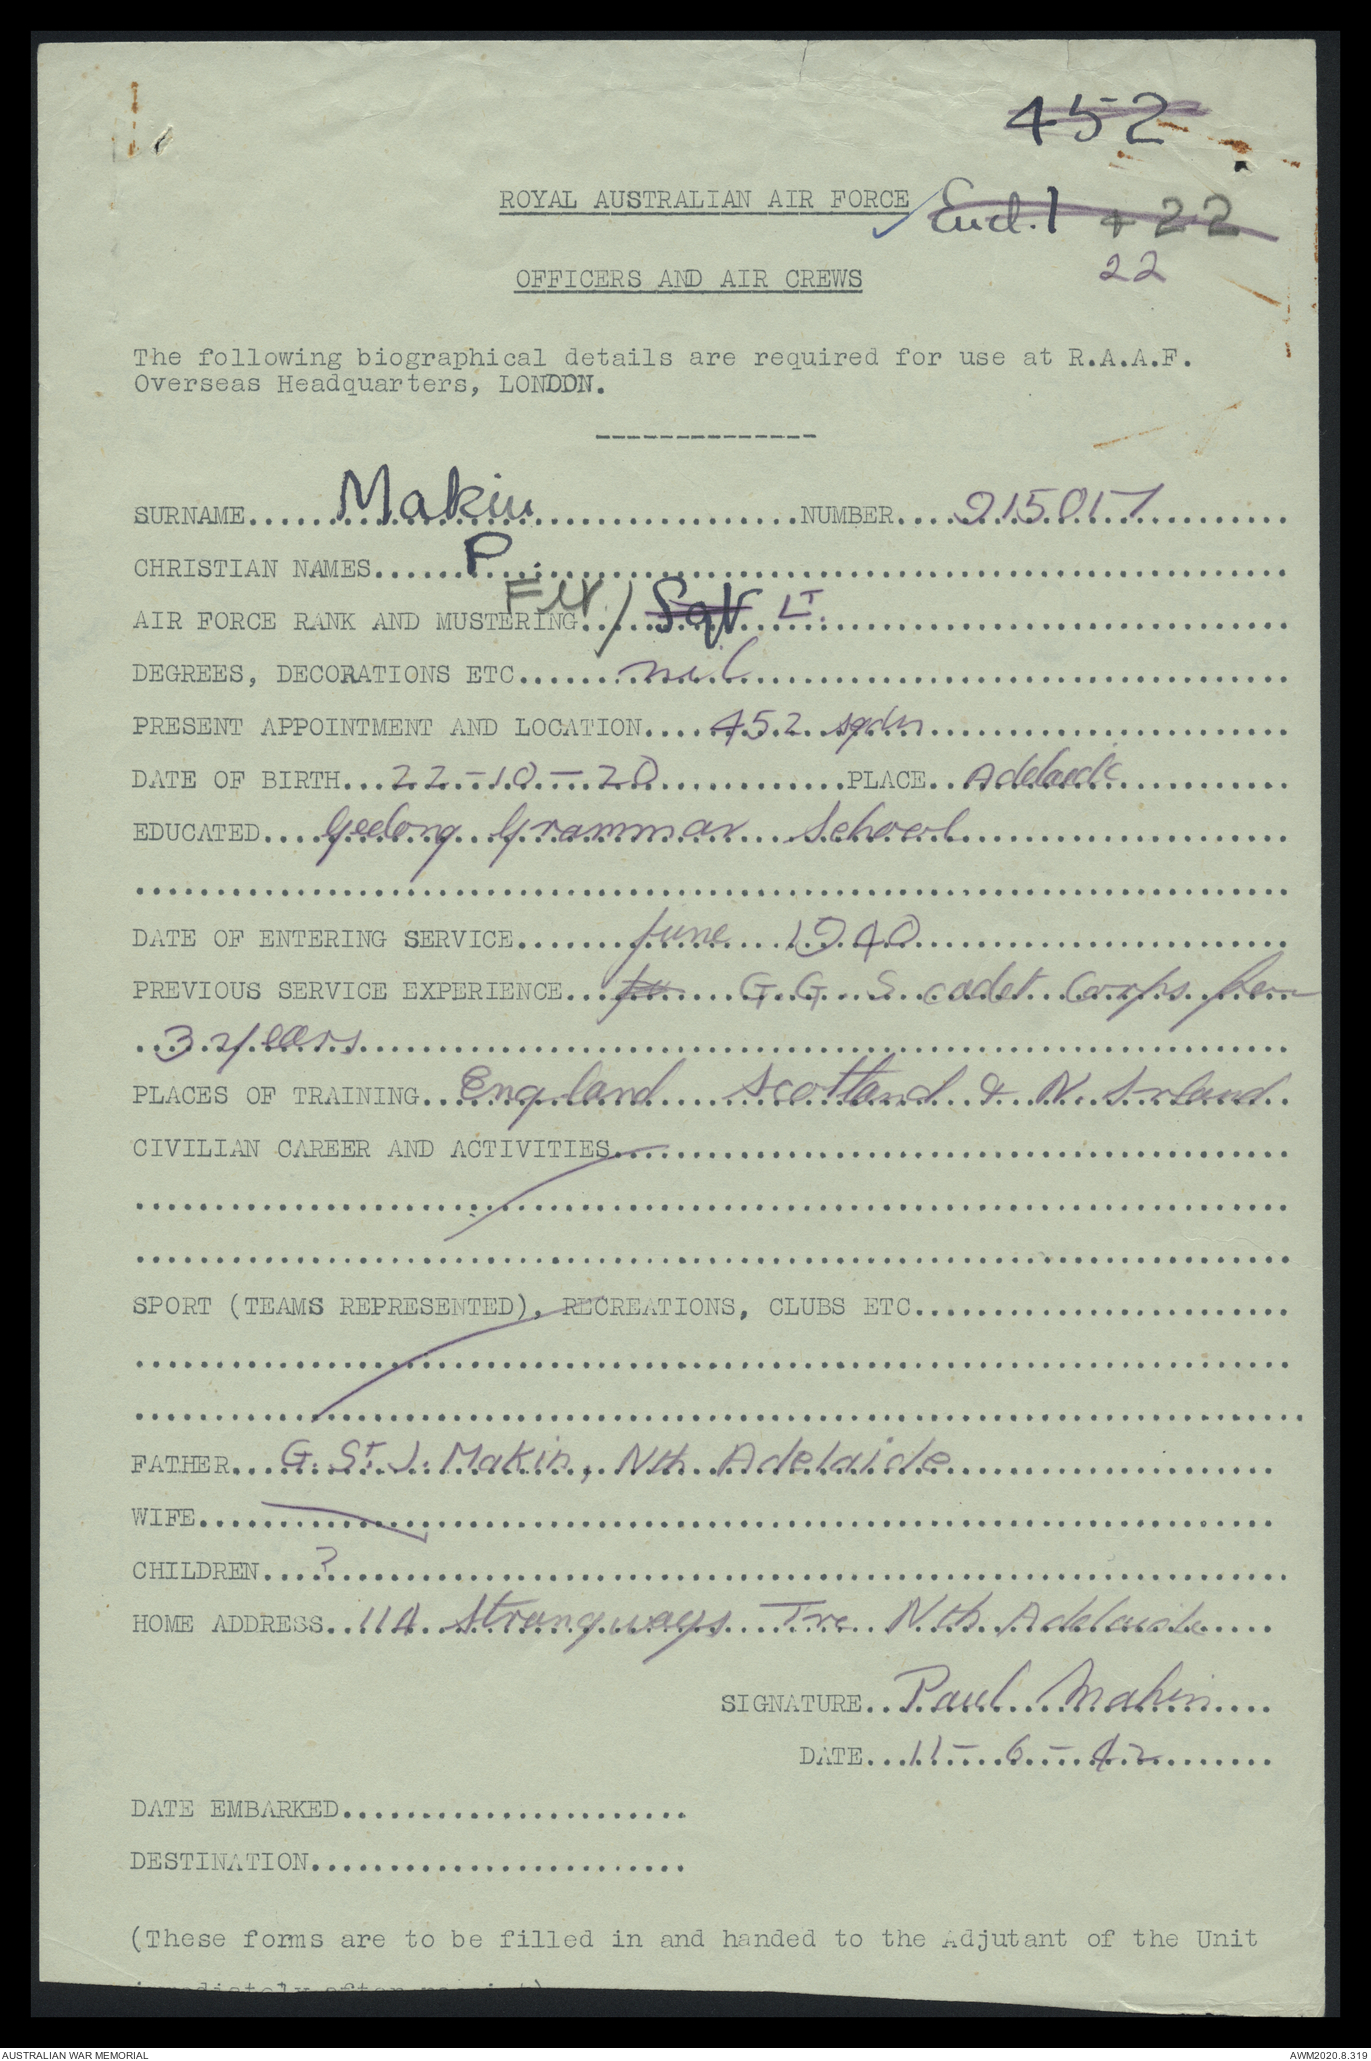 452
ROYAL AUSTRALIAN AIR FORCE Encl.1 + 22
22
OFFICERS AND AIR CREWS
The following biographical details are required for use at R.A.A.F.
Overseas Headquarters, LONDON.
--------------
SURNAME.....Makin.....NUMBER....215017.....
CHRISTIAN NAMES.....P.....
AIR FORCE RANK AND MUSTERING Flt/ Sgt LT.
DEGREES, DECORATIONS ETC.....nil.....
PRESENT APPOINTMENT AND LOCATION....452 sqdn.....
DATE OF BIRTH...22-10-20.....PLACE..Adelaide.....
EDUCATED....Geelong Grammar School.....
.....
DATE OF ENTERING SERVICE.....June 1940.....
PREVIOUS SERVICE EXPERIENCE... G G S cadet Corps for
3 years.....
PLACES OF TRAINING..England Scotland & N. Irland..
CIVILIAN CAREER AND ACTIVITIES.....
.....
.....
SPORT (TEAMS REPRESENTED), RECREATIONS, CLUBS ETC.....
.....
.....
FATHER...G. St. J. Makin, Nth Adelaide.....
WIFE.....
CHILDREN....?.....
HOME ADDRESS..11A Strangways Tre Nth Adelaide.....
SIGNATURE..Paul Makin....
DATE...11-6-42.....
DATE EMBARKED.....
DESTINATION.....
(These forms are to be filled in and handed to the Adjutant of the Unit
immediately after receipt)
AUSTRALIAN WAR MEMORIAL
AWM2020.8.319